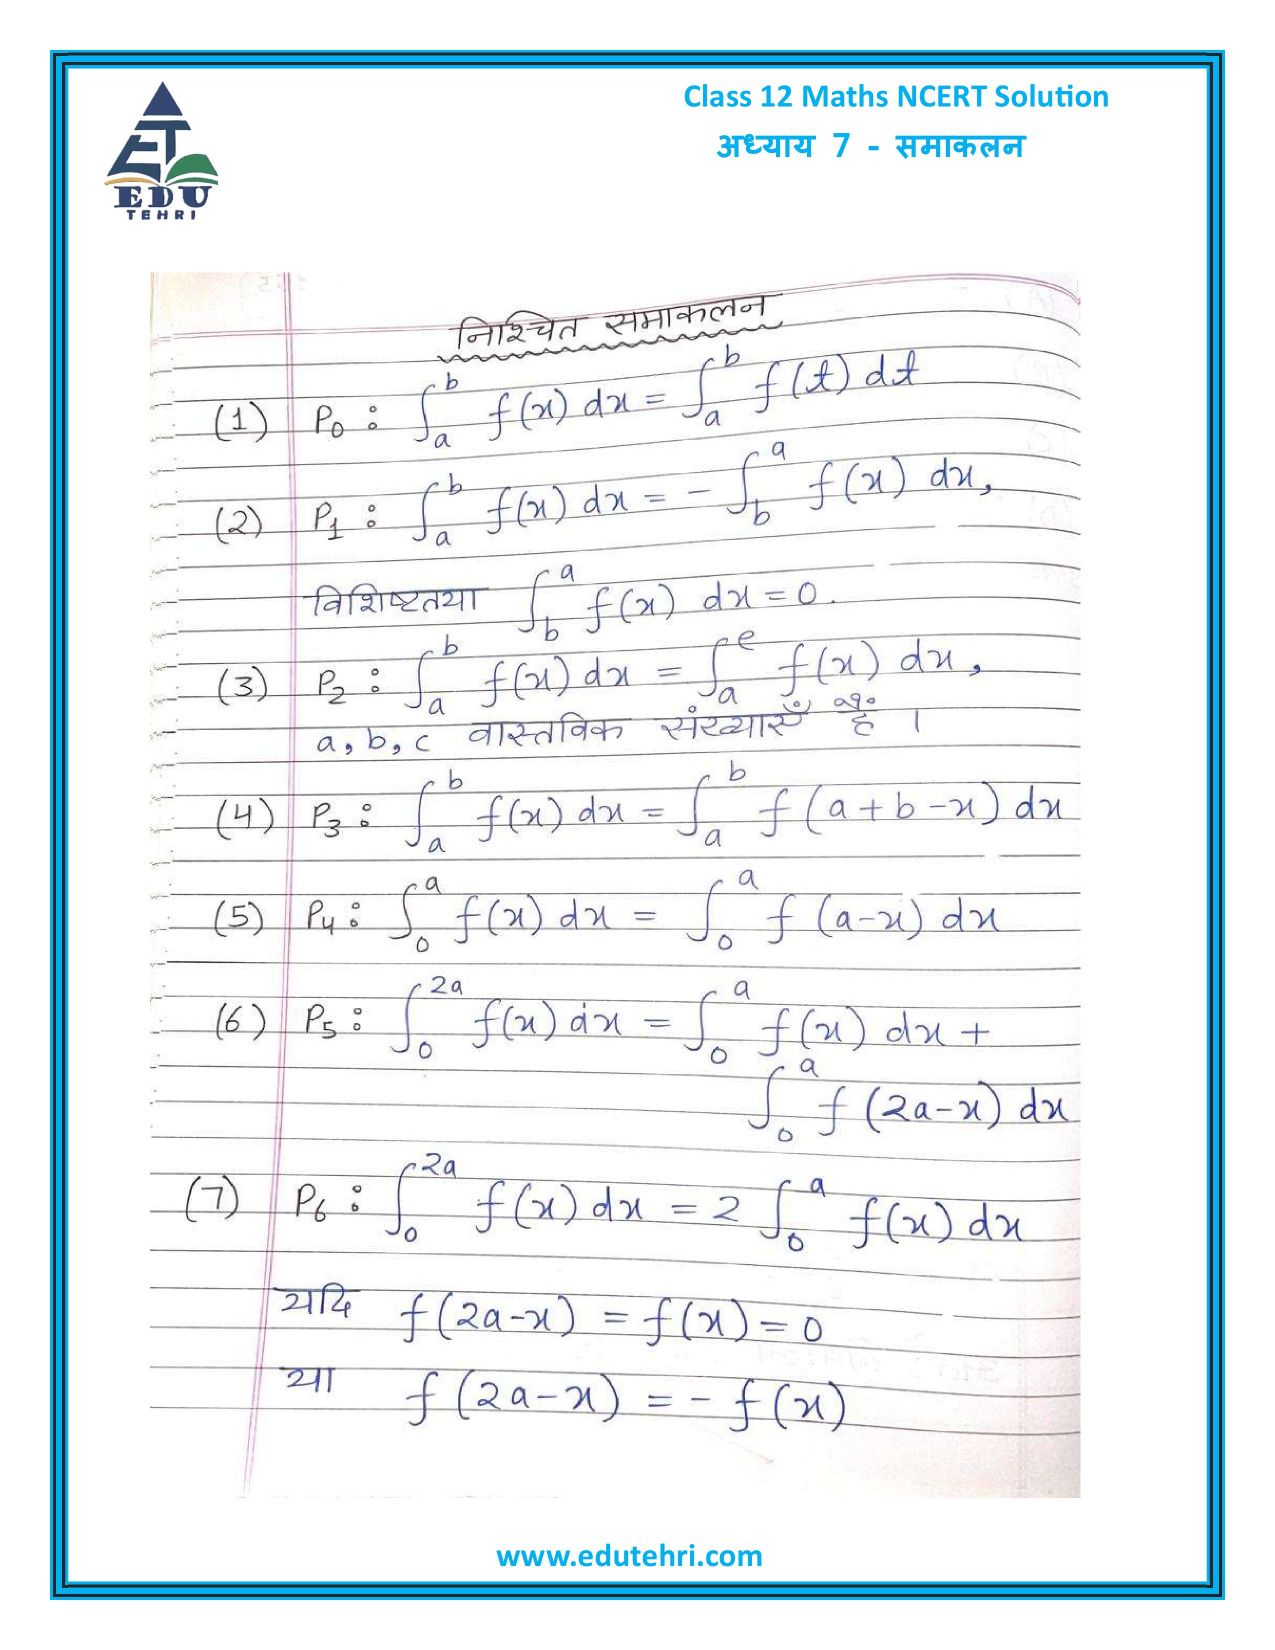 EDU
TEHRI
Class 12 Maths NCERT Solution
अध्याय 7 - समाकलन
निश्चित समाकलन
(1) P₀ : ∫ₐᵇ f(x) dx = ∫ₐᵇ f(t) dt
(2) P₁ : ∫ₐᵇ f(x) dx = - ∫_b^a f(x) dx,
विशिष्टतया ∫_b^a f(x) dx = 0.
(3) P₂ : ∫ₐᵇ f(x) dx = ∫ₐᵉ f(x) dx,
a, b, c वास्तविक संख्याएँ हैं ।
(4) P₃ : ∫ₐᵇ f(x) dx = ∫ₐᵇ f (a+b-x) dx
(5) P₄ : ∫₀ᵃ f(x) dx = ∫₀ᵃ f (a-x) dx
(6) P₅ : ∫₀²ᵃ f(x) dx = ∫₀ᵃ f(x) dx +
∫₀ᵃ f (2a-x) dx
(7) P₆ : ∫₀²ᵃ f(x) dx = 2 ∫₀ᵃ f(x) dx
यदि f(2a-x) = f(x) = 0
या f (2a-x) = - f(x)
www.edutehri.com